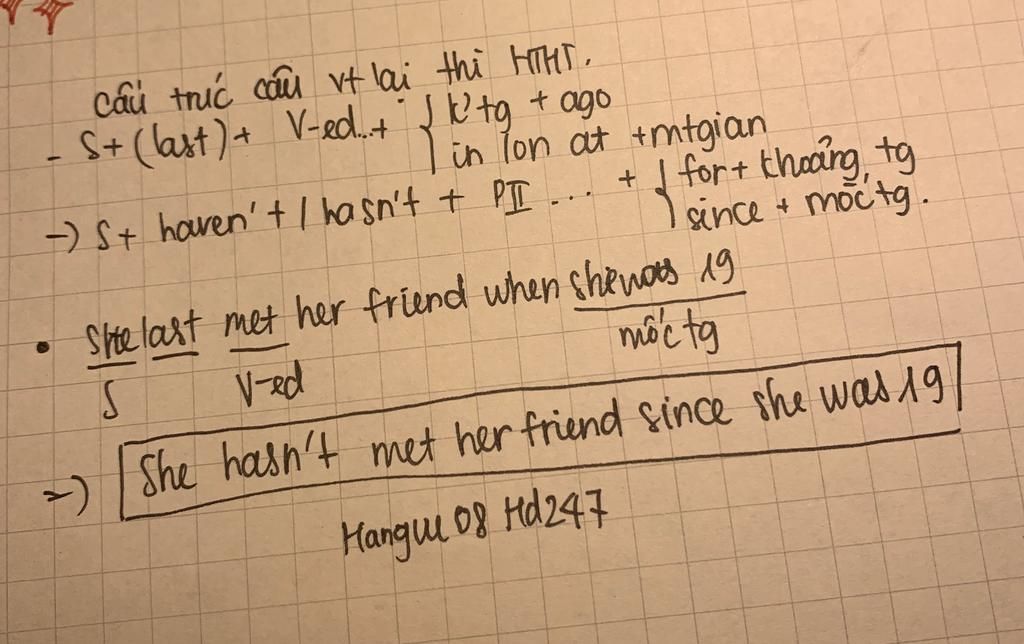 Cấu trúc câu vt lại thì HTHT.
- S + (last) + V-ed... + { k² tg + ago
in / on at + mtgian
→ S + haven't / hasn't + PII ... + { for + khoảng tg
since + mốc tg.
• She last met her friend when she was 19
S V-ed mốc tg
=> She hasn't met her friend since she was 19
Hanguu08 Hd247